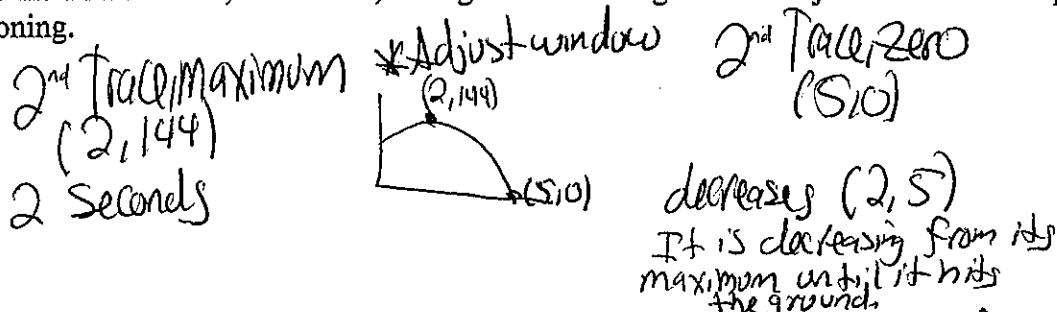 oning.
2nd Trace, maximum
(2,144)
2 seconds
*Adjust window
(2,144)
(5,0)
2nd Trace, zero
(5,0)
decreases (2,5)
It is decreasing from its
maximum until it hits
the ground.